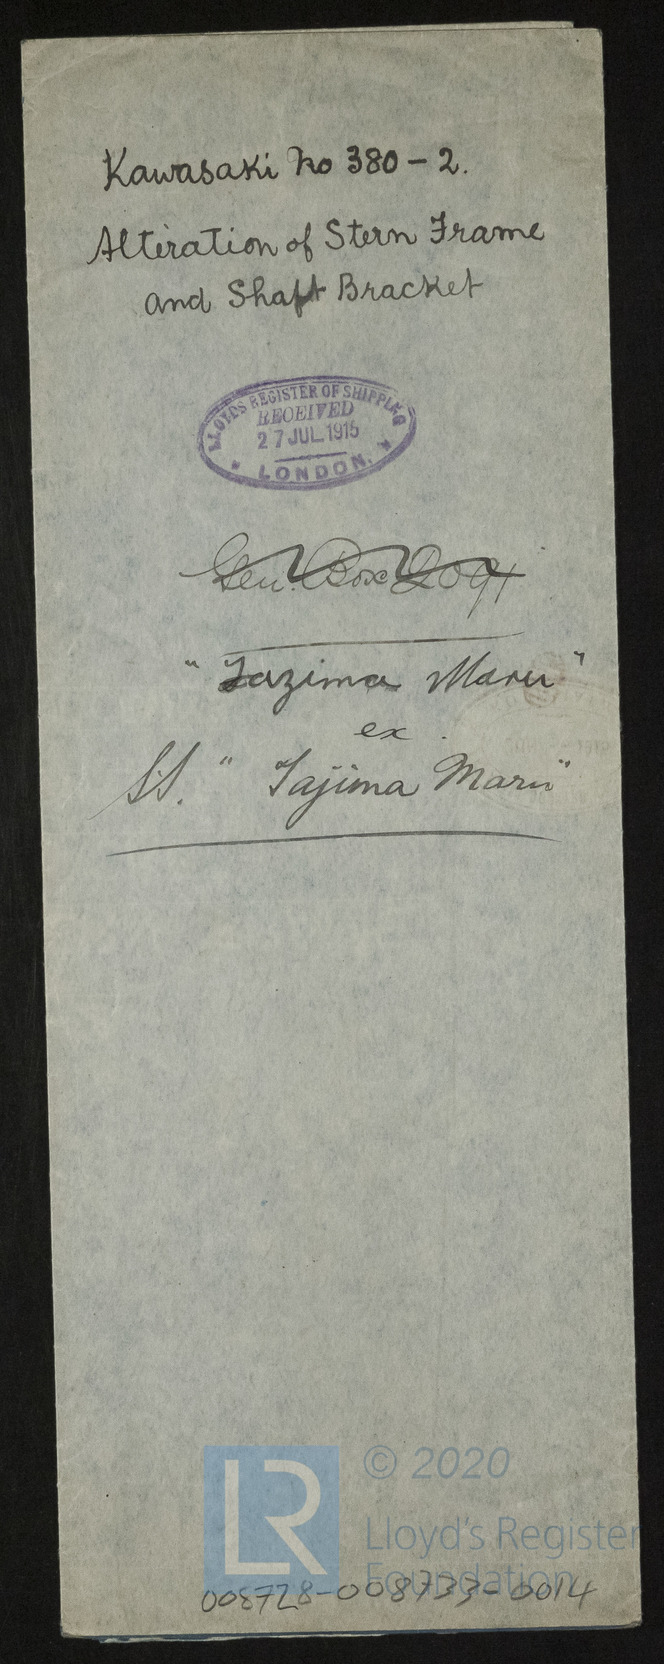 Kawasaki No 380-2.
Alteration of Stern Frame
and Shaft Bracket
LLOYDS REGISTER OF SHIPPING
RECEIVED
27 JUL 1915
LONDON.
Gen. Box 2091
"Tazima Maru"
ex.
S.S. "Tajima Maru"
LR
© 2020
Lloyd's Register
Foundation
008728-008733-0014